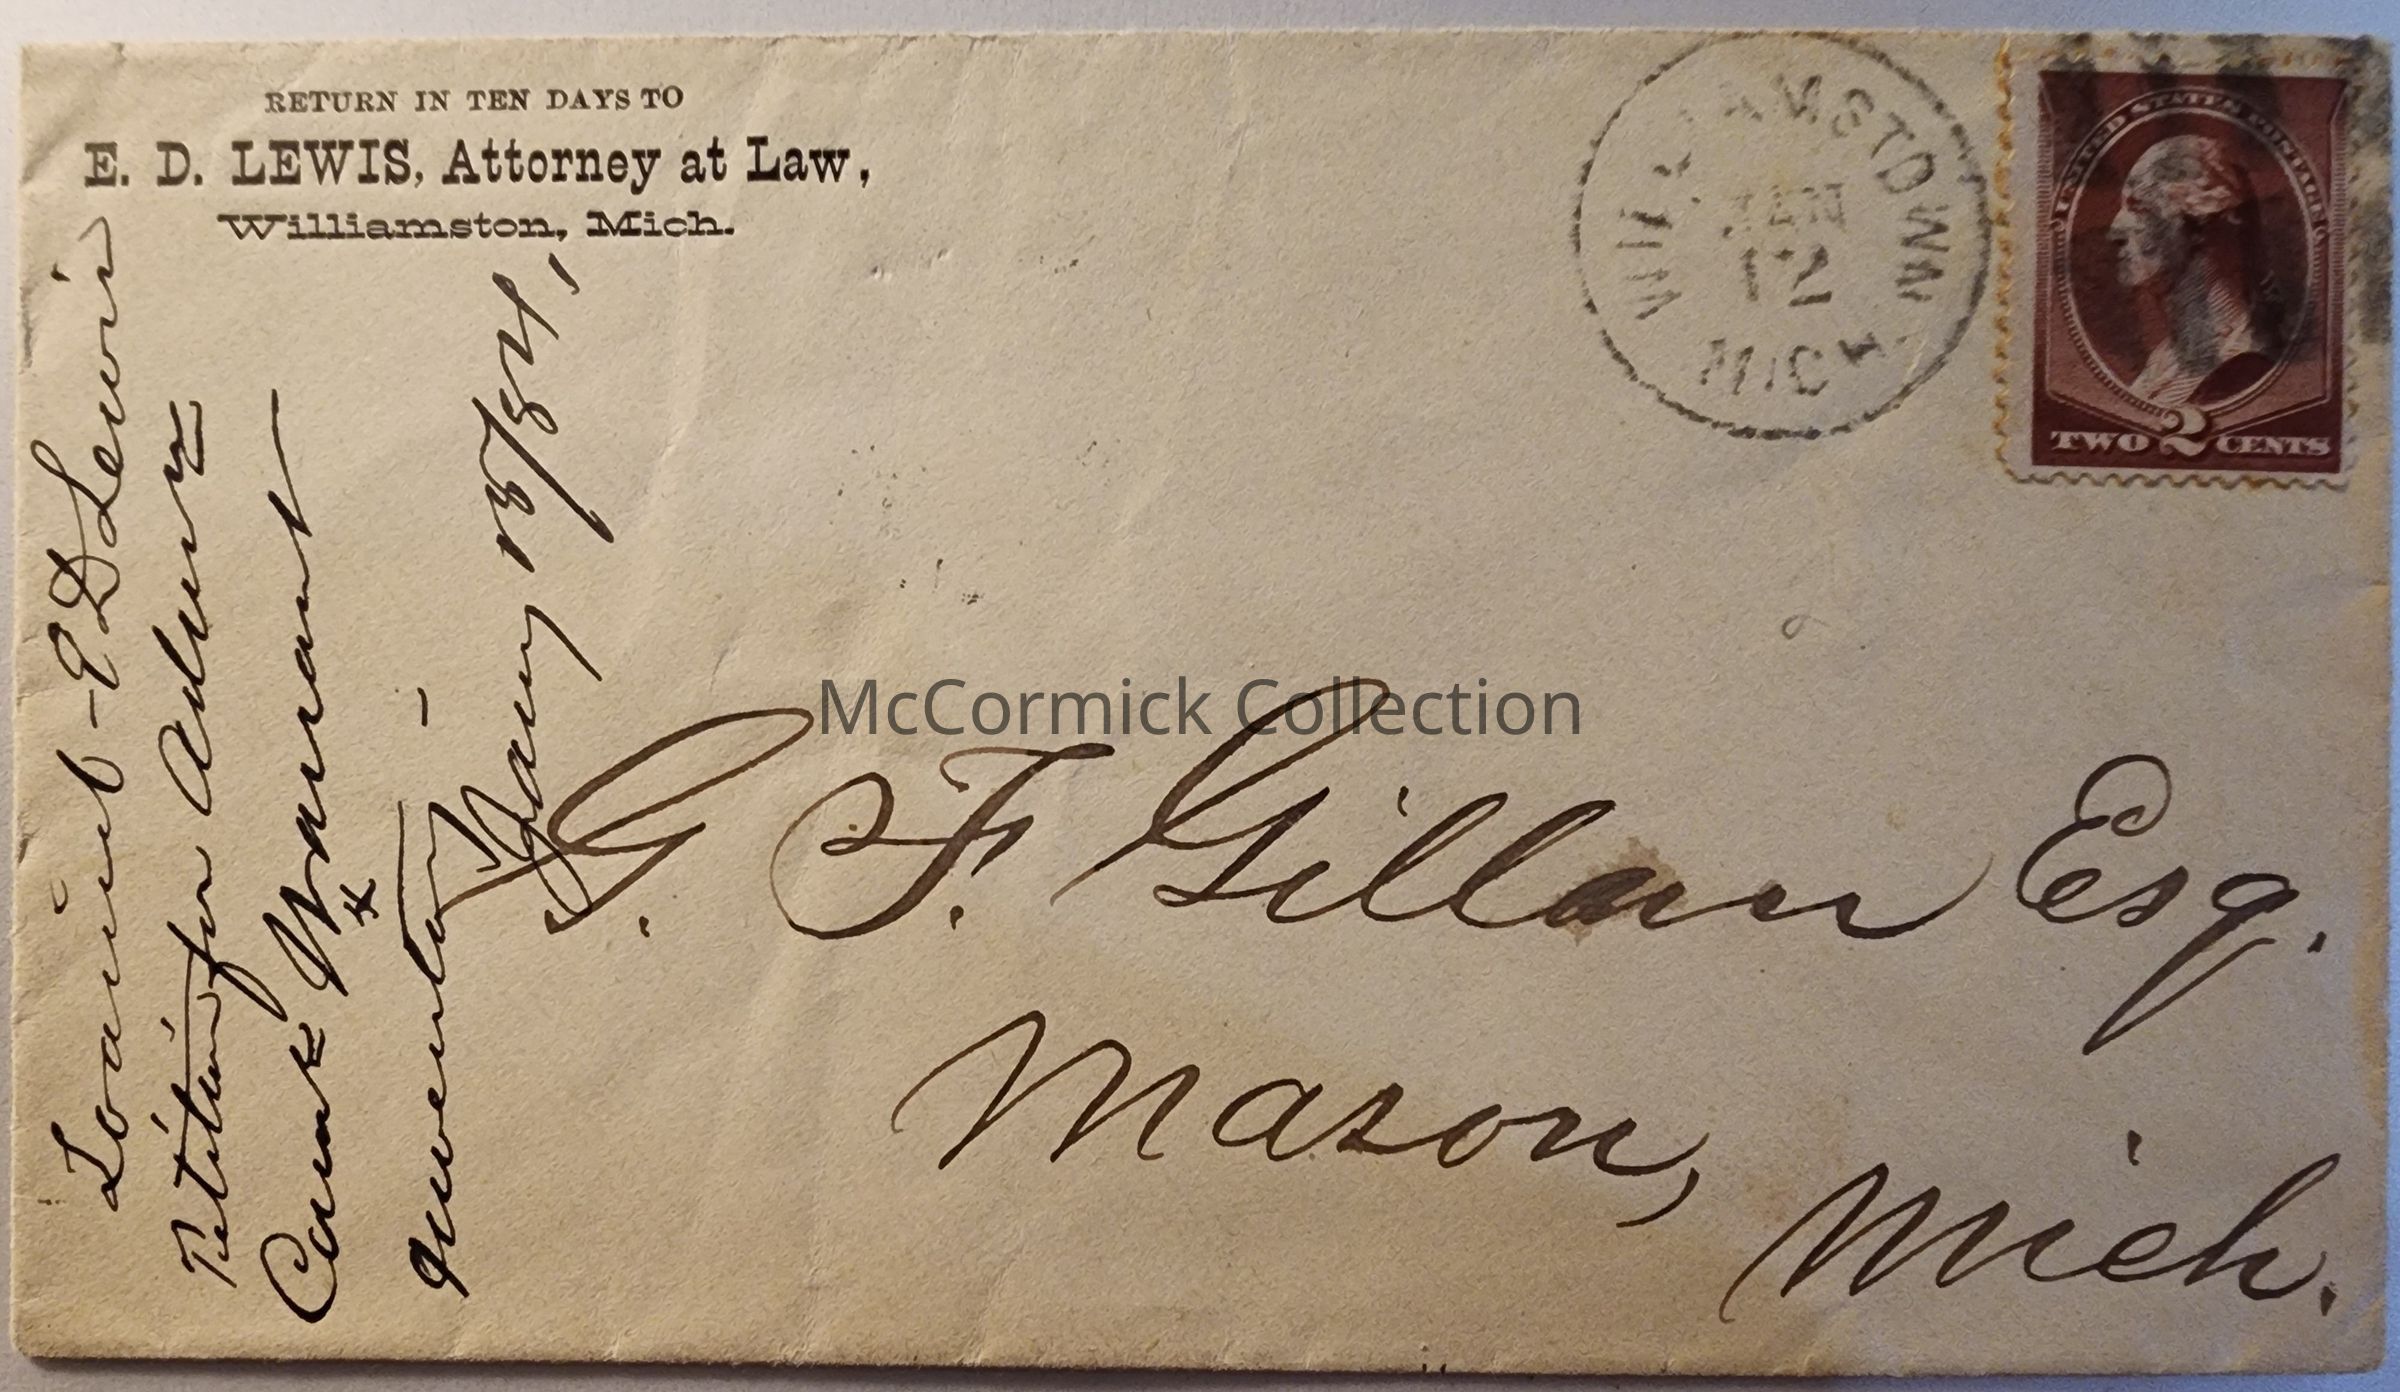 RETURN IN TEN DAYS TO
E. D. LEWIS, Attorney at Law,
Williamston, Mich.
WILLIAMSTOWN
12
MICH
UNITED STATES POSTAGE
TWO 2 CENTS
E D Lewis
Petition for
Warrant
&
Inventory
Jany 15/84,
McCormick Collection
G. F. Gillam Esq.
Mason,
Mich.